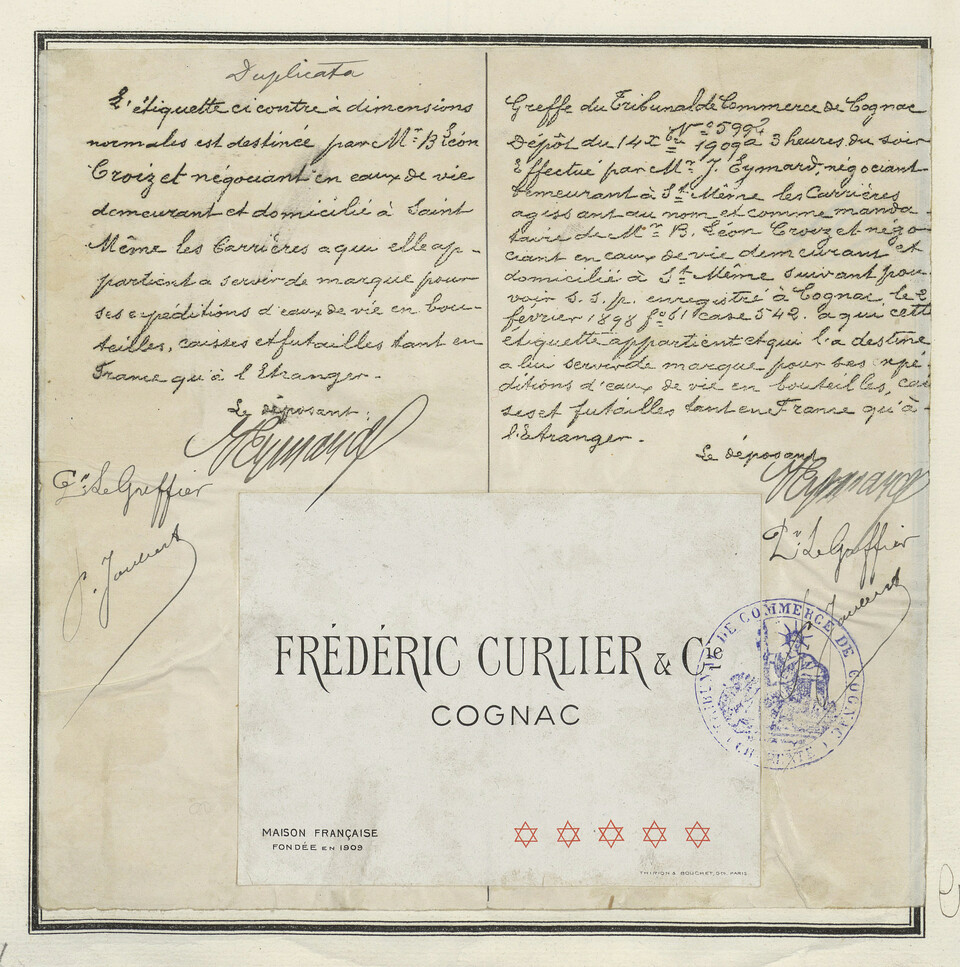 Duplicata
L'étiquette ci contre à dimensions
normales est destinée par Mr. B. Léon
Croizet négociant en eaux de vie
demeurant et domicilié à Saint
Même les Carrières a qui elle ap-
partient a servir de marque pour
ses expéditions d'eaux de vie en bou-
teilles, caisses et futailles tant en
France qu'à l'Etranger.
Le déposant:
JEymard
Le Greffier
Joubert
Greffe du Tribunal de Commerce de Cognac
No 5992
Dépôt du 14 Xbre 1909 à 3 heures du soir
Effectué par Mr. J. Eymard, négociant
demeurant à St Même les Carrières
agissant au nom et comme manda-
taire de Mr. B. Léon Croizet négo-
ciant en eaux de vie demeurant et
domicilié à St Même suivant pou-
voir s.s.p. enregistré à Cognac, le 2
février 1898 fo 61 case 542. a qui cette
etiquette appartient et qui l'a destine
a lui servir de marque pour ses expé-
ditions d'eaux de vie en bouteilles, cai
ses et futailles tant en France qu'à
l'Etranger.
Le déposant
JEymard
Pr Le Greffier
Joubert
FRÉDÉRIC CURLIER & Cie
COGNAC
MAISON FRANÇAISE
FONDÉE EN 1909
THIRION & BOUCHET, PARIS
TRIBUNAL DE COMMERCE DE COGNAC
CHARENTE